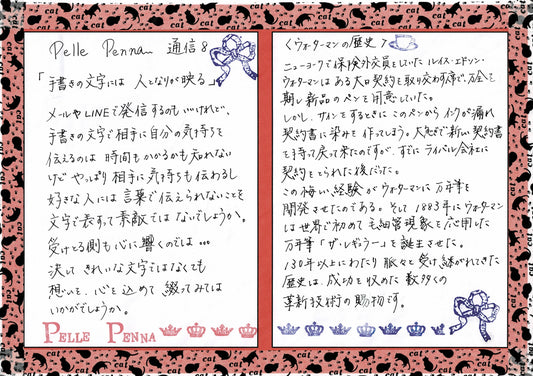 Pelle Penna 通信8
「手書きの文字には 人となりが映る」
メールやLINEで発信するのもいいけれど、
手書きの文字で相手に自分の気持ちを
伝えるのは 時間もかかるかも知れない
けどやっぱり相手に気持ちも伝わるし
好きな人には 言葉で伝えられないことを
文字で表すって素敵ではないでしょうか。
受けとる側も心に響くのでは…
決して きれいな文字ではなくても
想いを、心を込めて 綴ってみては
いかがでしょうか。
PELLE PENNA
〈ウォーターマンの歴史〉
ニューヨークで保険外交員をしていたルイス・エドソン・
ウォーターマンは ある大口契約を取り交わす席で、万全を
期し新品のペンを用意していた。
しかし、サインをするときに このペンから インクが漏れ
契約書に染みを 作ってしまう。大急ぎで新しい契約書
を持って戻って来たのですが、すでにライバル会社に
契約をとられた後だった。
この悔しい経験が ウォーターマンに 万年筆を
開発させたのである。そして 1883年にウォーターマン
は世界で初めて 毛細管現象を応用した
万年筆「ザ・レギュラー」を誕生させた。
130年以上にわたり 脈々と受け継がれてきた
歴史は、成功を収めた 数多くの
革新技術の賜物です。